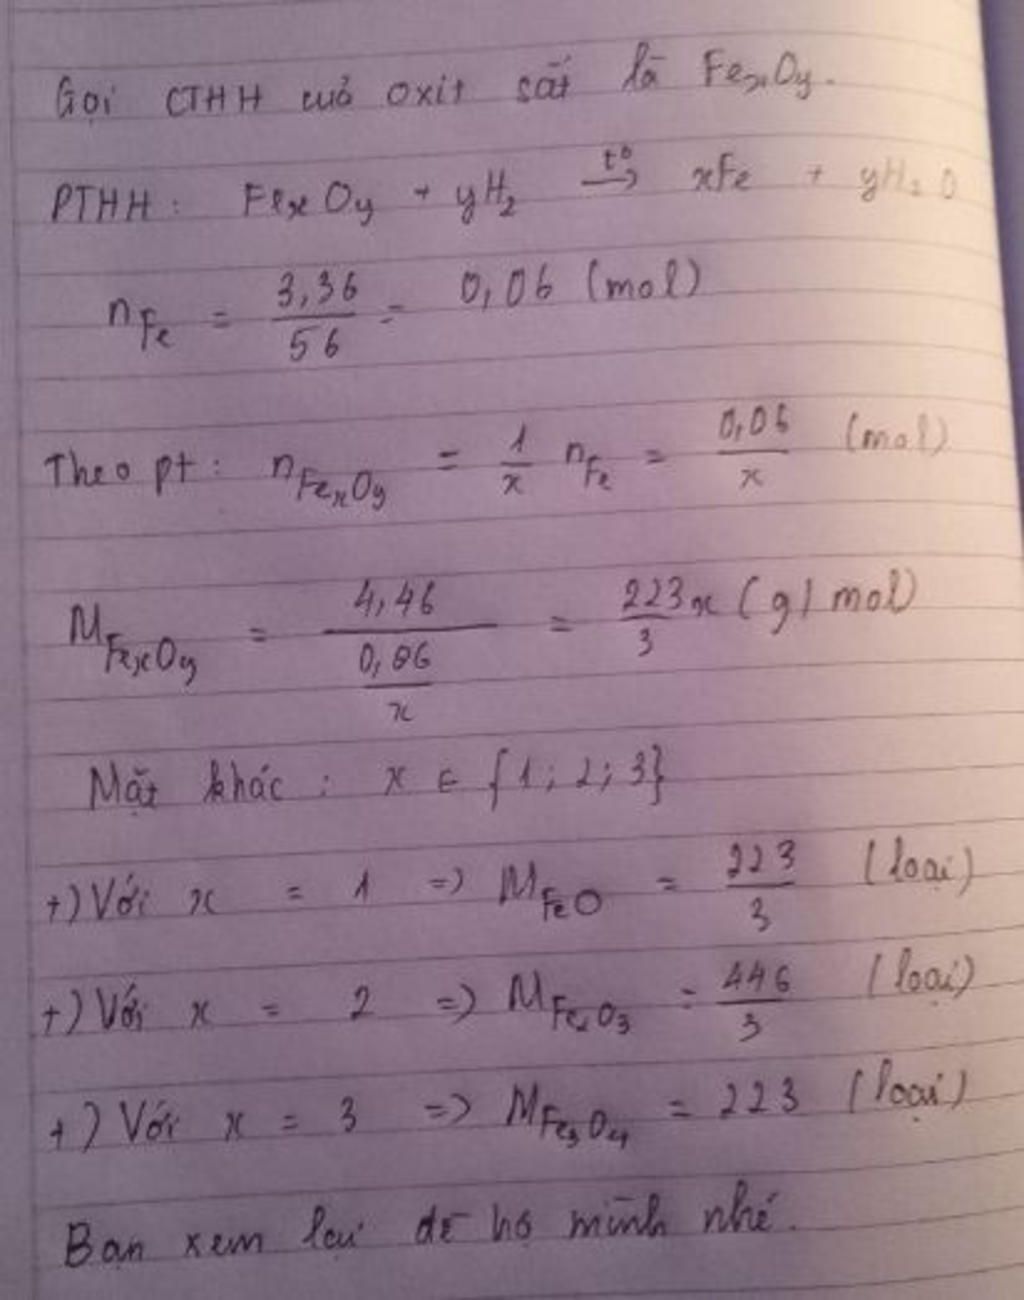 Gọi CTHH của oxit sắt là FexOy.
PTHH: FexOy + yH2 t° → xFe + yH2O
nFe = 3,36/56 = 0,06 (mol)
Theo pt: nFexOy = 1/x nFe = 0,06/x (mol)
MFexOy = 4,46/(0,06/x) = 223x/3 (g/mol)
Mặt khác: x ∈ {1; 2; 3}
+) Với x = 1 => MFeO = 223/3 (loại)
+) Với x = 2 => MFe2O3 = 446/3 (loại)
+) Với x = 3 => MFe3O4 = 223 (loại)
Bạn xem lại đề hộ mình nhé.